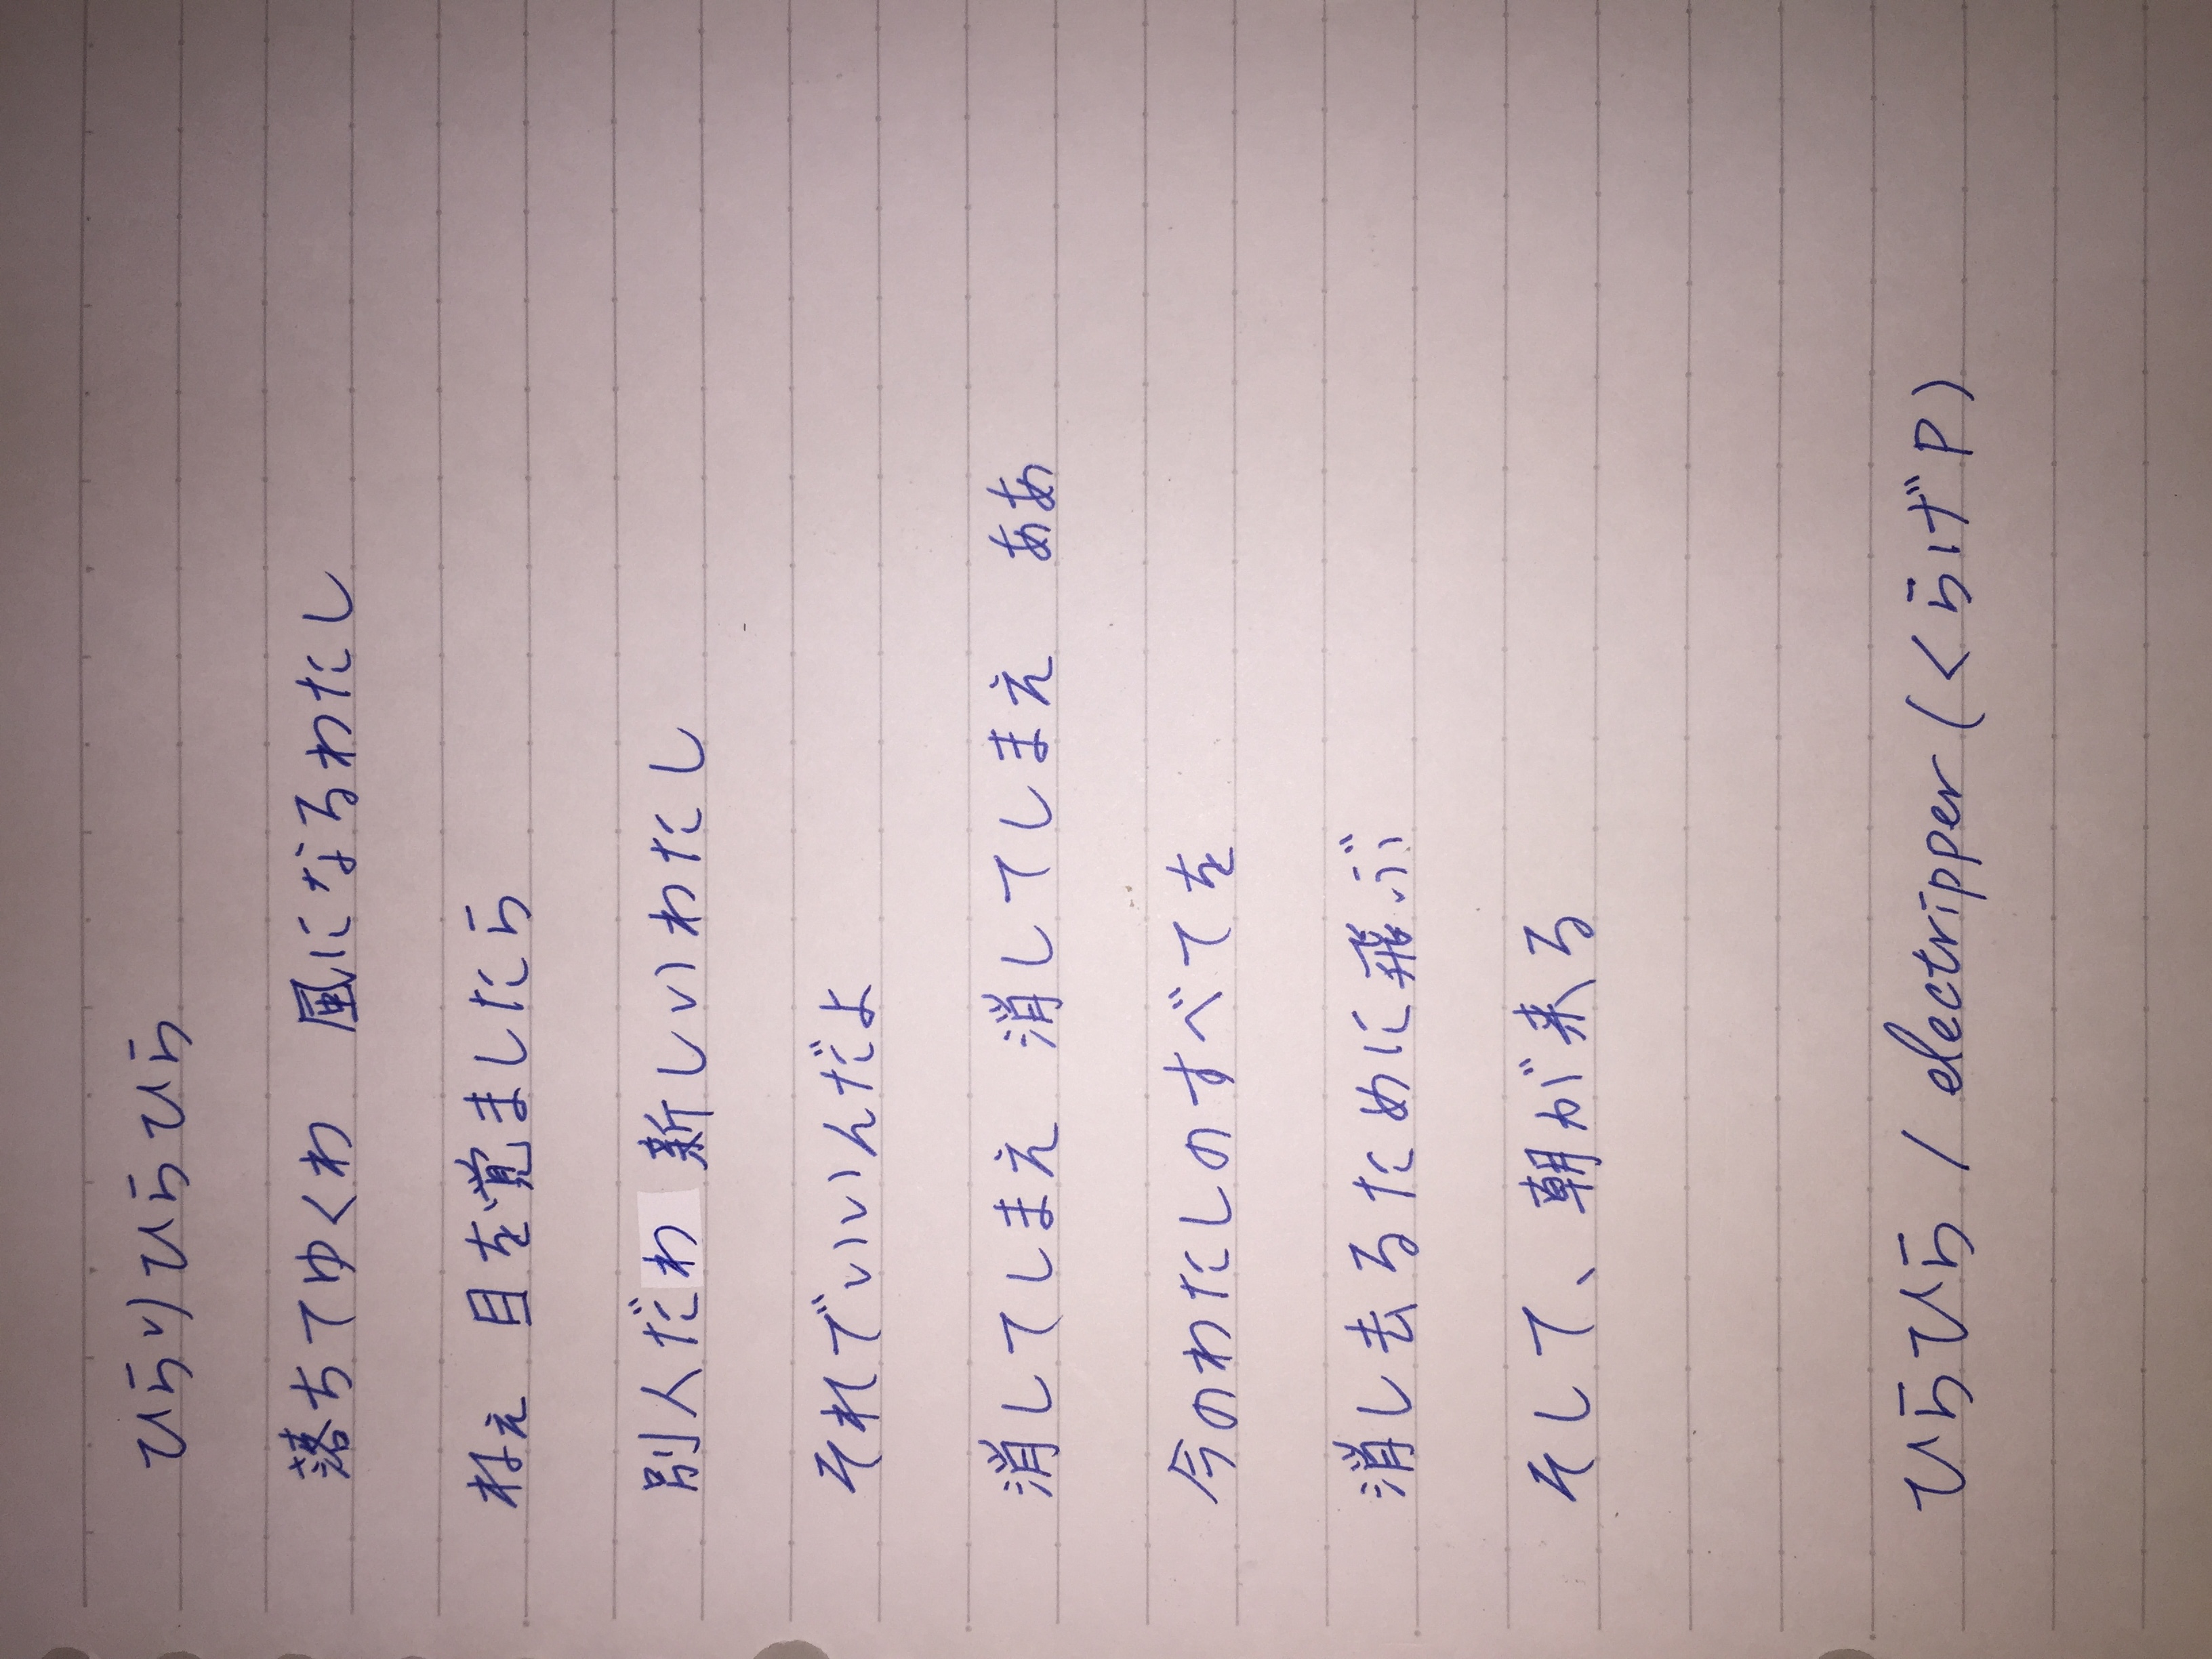 ひらりひらひら
落ちてゆくわ　風になるわたし
ねぇ　目を覚ましたら
別人だわ　新しいわたし
それでいいんだよ
消してしまえ　消してしまえ　ああ
今のわたしのすべてを
消し去るために飛ぶ
そして、朝が来る
ひらひら / electripper (くらげP)